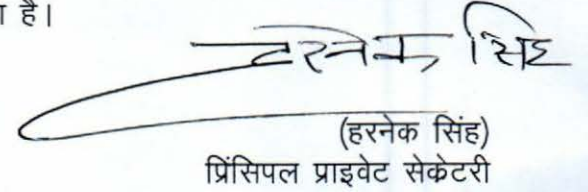 है।
हरनेक सिंह
(हरनेक सिंह)
प्रिंसिपल प्राइवेट सेकेटरी